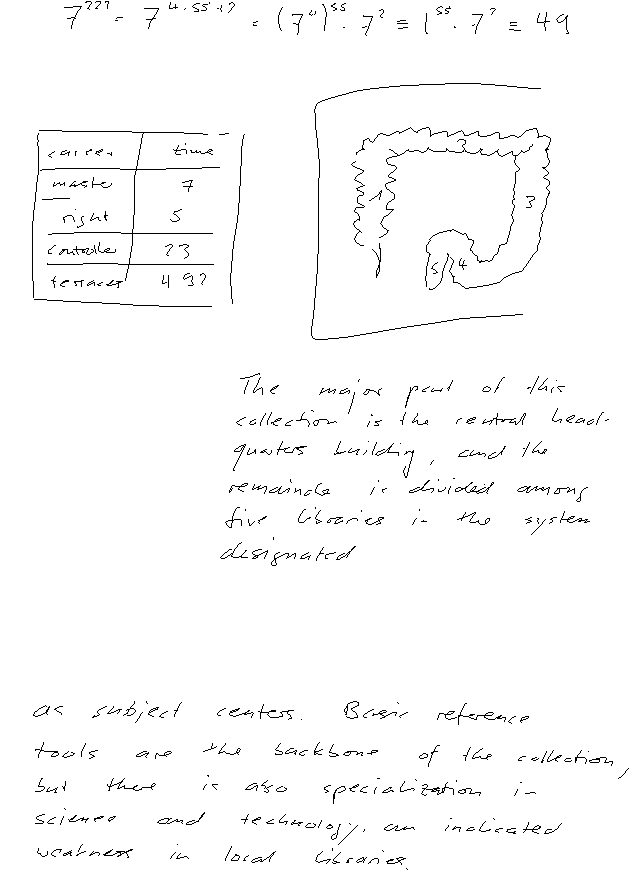 7²²² = 7^(4·55+2) = (7⁴)⁵⁵ · 7² ≡ 1⁵⁵ · 7² ≡ 49
career time
master 7
right 5
controller 23
terraces 492
3
1 3
5 4
The major part of this
collection is the central head-
quarters building, and the
remainder is divided among
five libraries in the system
designated
as subject centers. Basic reference
tools are the backbone of the collection,
but there is also specialization in
science and technology, an indicated
weakness in local libraries.